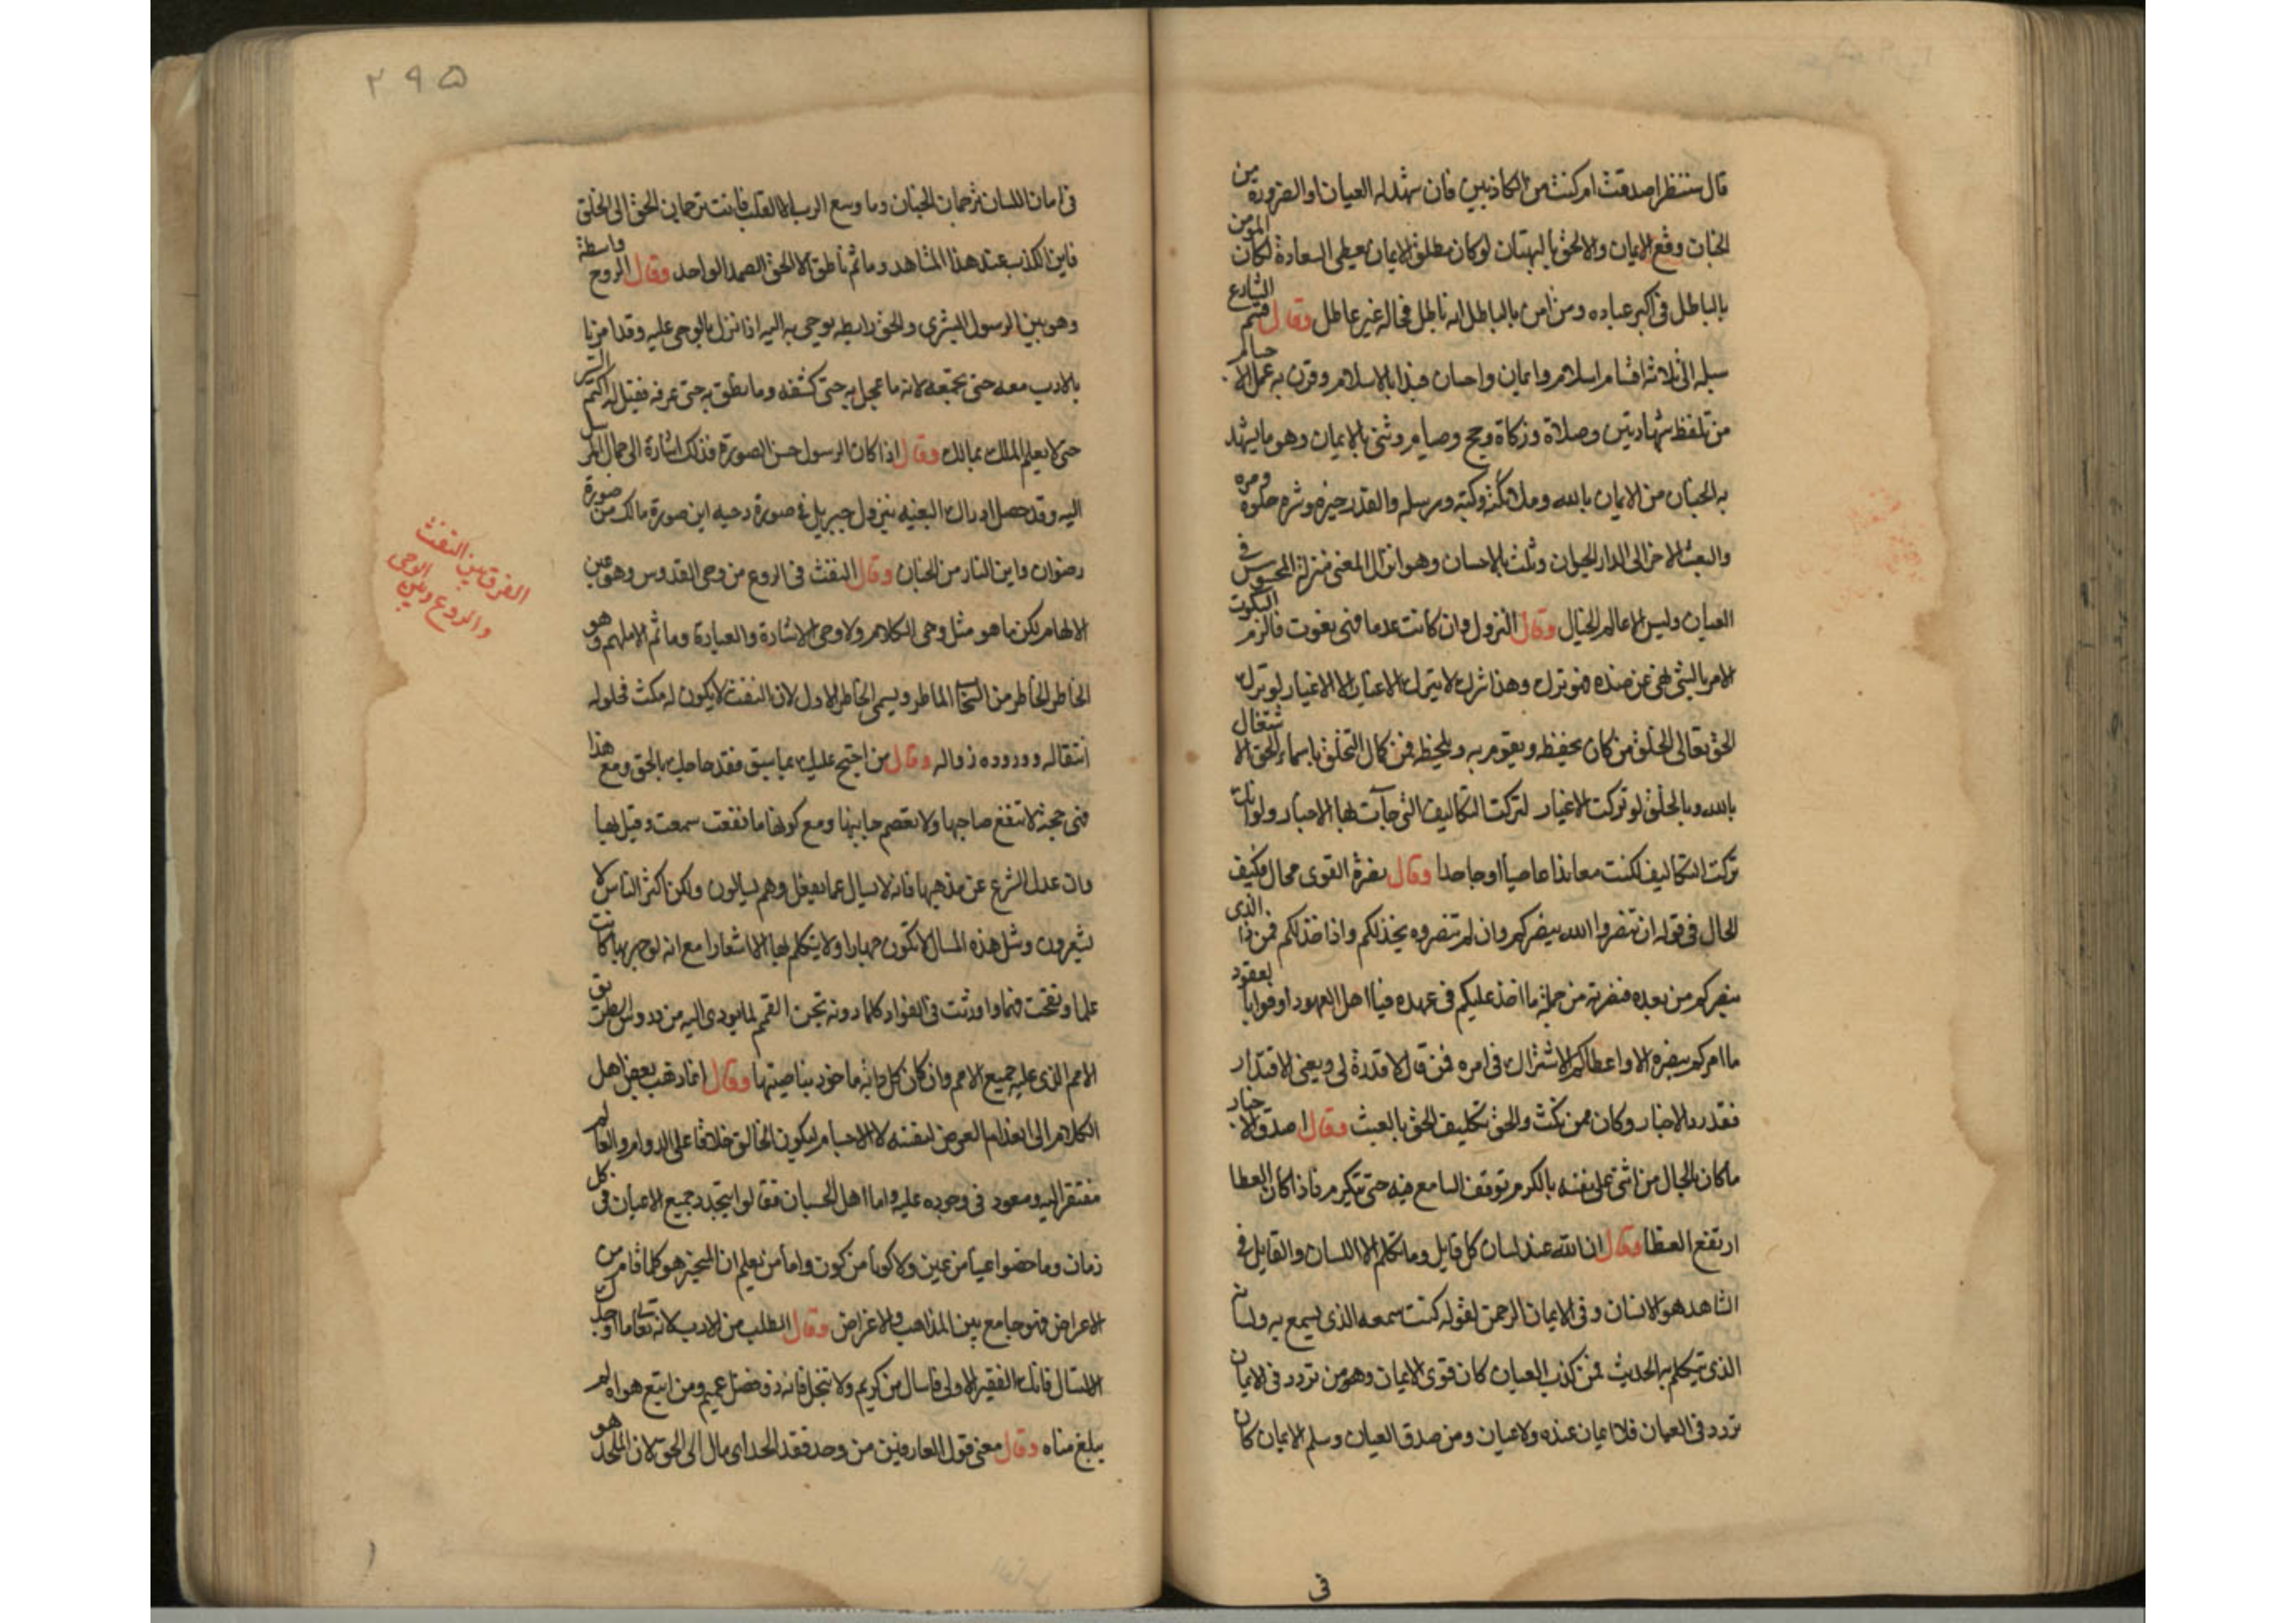 قال سننظر اصدقت ام كنت من الكاذبين فان شهد له العيان او الضرورة من
الجنان وقع الايمان والا لحق بالبهتان لو كان مطلق الايمان يعطى السعادة لكان المومن
بالباطل فى اكبر عباده ومن امن بالباطل انه باطل فحاله غير عاطل وقال قسم الشارع
سبله الى ثلاثه اقسام اسلام وايمان واحسان فبدا بالاسلام وقرن به عمل الا جسام
من تلفظ شهادتين وصلاة وزكاة وحج وصيام وثنى بالايمان وهو ما يشهد
به الجنان من الايمان بالله وملائكته وكتبه ورسله والقدر خيره وشره حلوه ومره
والبعث الاخر الى الدار الحيوان وثلث بالاحسان وهو انزال المعنى منزلة المحسوس فى
العيان وليس الا عالم الخيال وقال النزول وان كانت عدما فهى نعوت فالزم السكوت
الامر بالشى نهى عن ضده فهو ترك وهذا شرك لا يترك الاغيار الا الاغيار لو ترك
الحق تعالى الخلق من كان يحفظه ويقوم به ويلحظه فمن كمال التخلق باسماء الحق الا شتغال
بالله وبالخلق لو تركت الاغيار لتركت التكاليف التى جآت بها الاخبار ولو
تركت التكاليف لكنت معاندا عاصيا او جاحدا وقال نصرة القوى محال فكيف
الحال فى قوله ان تنصروا الله ينصركم وان لم تنصروه يخذلكم واذا خذلكم فمن ذا الذى
ينصركم من بعده فنصرته من جملة ما اخذ عليكم فى عهده فيا اهل العهود اوفوا با لعقود
ما امركم بنصره الا واعطاكم الاشتراك فى امره فمن قال لا قدرة لى ويعنى الاقتدار
فقد رد الاخبار وكان ممن نكث والحق تكليف الحق بالعبث وقال اصدق الا خبار
ما كان بالحال من اثنى على نفسه بالكرم توقف السامع فيه حتى يتكرم فاذا كان العطا
ارتفع الغطا وقال ان الله عند لسان كل قايل وما تكلم الا اللسان والقايل فى
الشاهد هو الانسان وفى الايمان الرحمن لقوله كنت سمعه الذى يسمع به ولسانه
الذى يتكلم به الحديث فمن كذب العيان كان قوى الايمان وهو من تردد فى الايمان
تردد فى العيان فلا ايمان عنده ولا عيان ومن صدق العيان وسلم الايمان كان
فى
٢٩٥
فى امان اللسان ترجمان الجنان وما وسع الرب الا القلب فانت ترجمانى الحق الى الخلق
فاين الكذب عند هذا المشاهد وما ثم ناطق الا الحق الصمد الواحد وقال الروح واسطة
وهو بين الرسول البشرى والحق رابطه يوحى به اليه اذا نزل بالوحى عليه وقد امرنا
بالادب معه حتى نجتمعه لانه ما عجل به حتى كشفه وما نطق به حتى عرفه فقيل له اكتم السر
حتى لا يعلم الملك بمالك وقال اذا كان الرسول حسن الصورة فذلك اشارة الى جمال المر سل
اليه وقد حصل ادراك البغيه بنزول جبريل فى صورة دحيه اين صورة مالك من صورة
رضوان واين النار من الجنان وقال النفث فى الروع من وحى القدوس وهو عين
الالهام لكن ما هو مثل وحى الكلام ولا وحى الاشارة والعبارة وما ثم الا ملهم وهو
الخاطر الخاطر من السحاب الماطر ويسمى الخاطر الاول لان النفث لا يكون له مكث فحلوله
انتقاله ووروده زواله وقال من احتج عليك بما سبق فقد حاجك بالحق ومع هذا
فهى حجة لا تنفع صاحبها ولا تعصم جانبها ومع كونها ما نفعت سمعت وقيل بها
وان عدل الشرع عن مذهبها فانه لا يسال عما يفعل وهم يسالون ولكن اكثر الناس لا
يشعرون ومثل هذه المسال لا تكون جهارا ولا يتكلم بها الا اشعارا مع انه لو جهر بها كانت
علما ونفخت فهما واورثت فى الفواد كلما دونه تجن القمم لما يودى اليه من دروس الطريق
الامم الذى عليه جميع الامم وان كان كل دابة ماخوذ بناصيتها وقال انما ذهب بعض اهل
الكلام الى انعدام العرض لنفسه لا الاجسام ليكون الخالق خلاقا على الدوام والعالم
مفتقر اليه ومعود فى وجوده عليه واما اهل الحسبان فقالوا يتجدد جميع الاعيان فى كل
زمان وما خصوا عينا من عين ولا كونا من كون واما من يعلم ان المتحيز هو كلما قام من
الاعراض فهو جامع بين المذاهب والاغراض وقال الطلب من الادب لانه تعالى ما اوجدك
الا لتسال فانك الفقير الاول فاسال من كريم ولا تبخل فانه ذو فضل عميم ومن اتبع هواه لم
يبلغ مناه وقال معنى قول العارفين من وحد فقد الحد اى مال الى الحق لان الملحد هو
الفرق بين النفث
والروع وبين الوحى